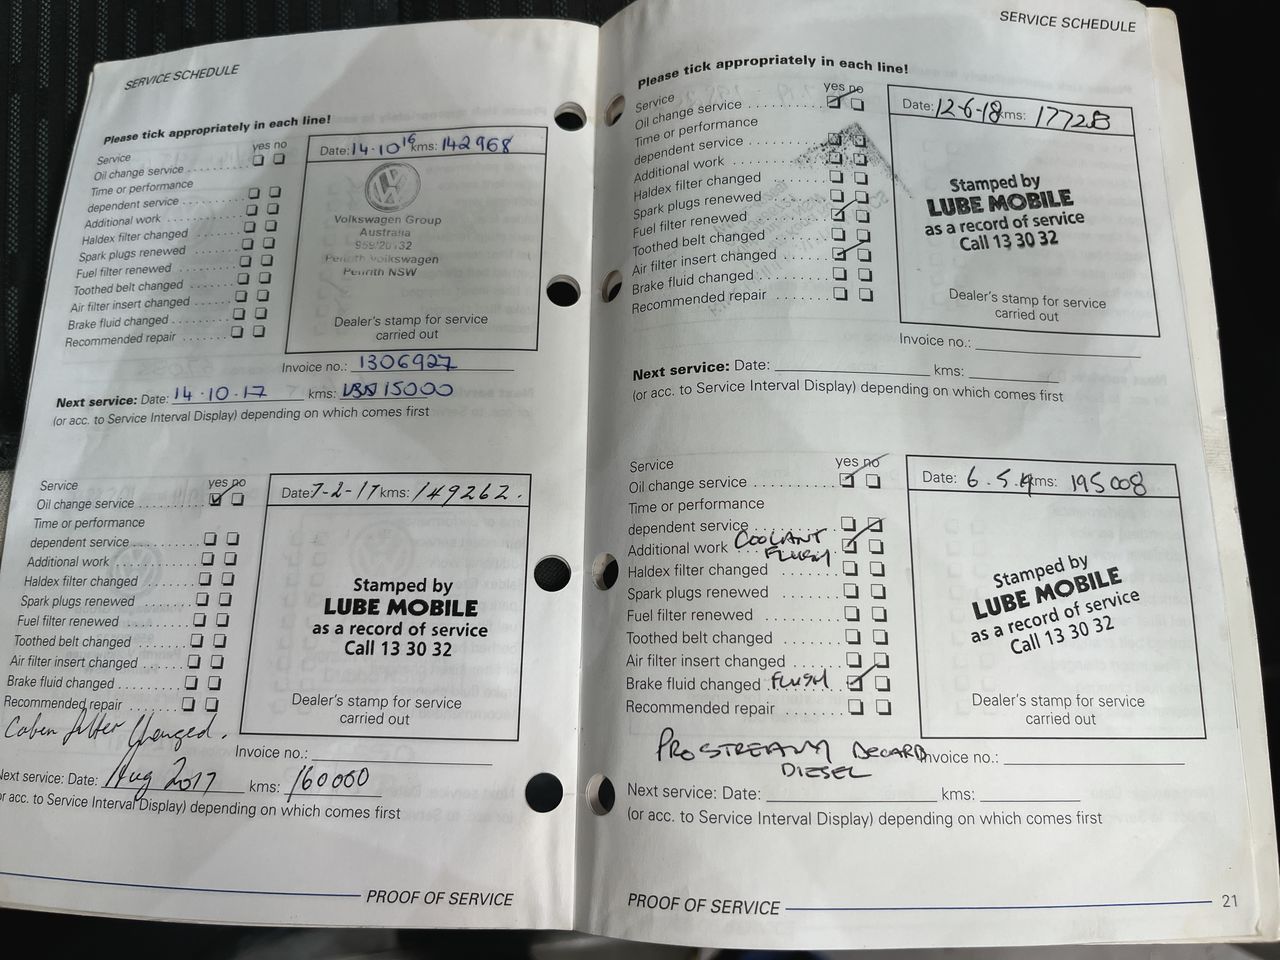 SERVICE SCHEDULE
Please tick appropriately in each line!
Service
yes no
Oil change service
Time or performance
dependent service
Additional work
Haldex filter changed
Spark plugs renewed
Fuel filter renewed
Toothed belt changed
Air filter insert changed
Brake fluid changed
Recommended repair
Date: 14·10 16 kms: 142968
Volkswagen Group
Australia
Penrith Volkswagen
Penrith NSW
Dealer's stamp for service
carried out
Invoice no.: 1306927
Next service: Date: 14·10·17 kms: 15000
(or acc. to Service Interval Display) depending on which comes first
Service
yes no
Oil change service
Time or performance
dependent service
Additional work
Haldex filter changed
Spark plugs renewed
Fuel filter renewed
Toothed belt changed
Air filter insert changed
Brake fluid changed
Recommended repair
Date 7-2-17 kms: 149262.
Stamped by
LUBE MOBILE
as a record of service
Call 13 30 32
Dealer's stamp for service
carried out
Caben filter Changed.
Invoice no.:
Next service: Date: Aug 2017 kms: 160000
or acc. to Service Interval Display) depending on which comes first
PROOF OF SERVICE
SERVICE SCHEDULE
Please tick appropriately in each line!
Service
yes no
Oil change service
Time or performance
dependent service
Additional work
Haldex filter changed
Spark plugs renewed
Fuel filter renewed
Toothed belt changed
Air filter insert changed
Brake fluid changed
Recommended repair
Date: 12-6-18 kms: 177283
Stamped by
LUBE MOBILE
as a record of service
Call 13 30 32
Dealer's stamp for service
carried out
Invoice no.:
Next service: Date: kms:
(or acc. to Service Interval Display) depending on which comes first
Service
yes no
Oil change service
Time or performance
dependent service
Additional work COOLANT FLUSH
Haldex filter changed
Spark plugs renewed
Fuel filter renewed
Toothed belt changed
Air filter insert changed
Brake fluid changed FLUSH
Recommended repair
Date: 6.5.19 kms: 195008
Stamped by
LUBE MOBILE
as a record of service
Call 13 30 32
Dealer's stamp for service
carried out
PROSTREAM DECARB
DIESEL
Invoice no.:
Next service: Date: kms:
(or acc. to Service Interval Display) depending on which comes first
PROOF OF SERVICE
21